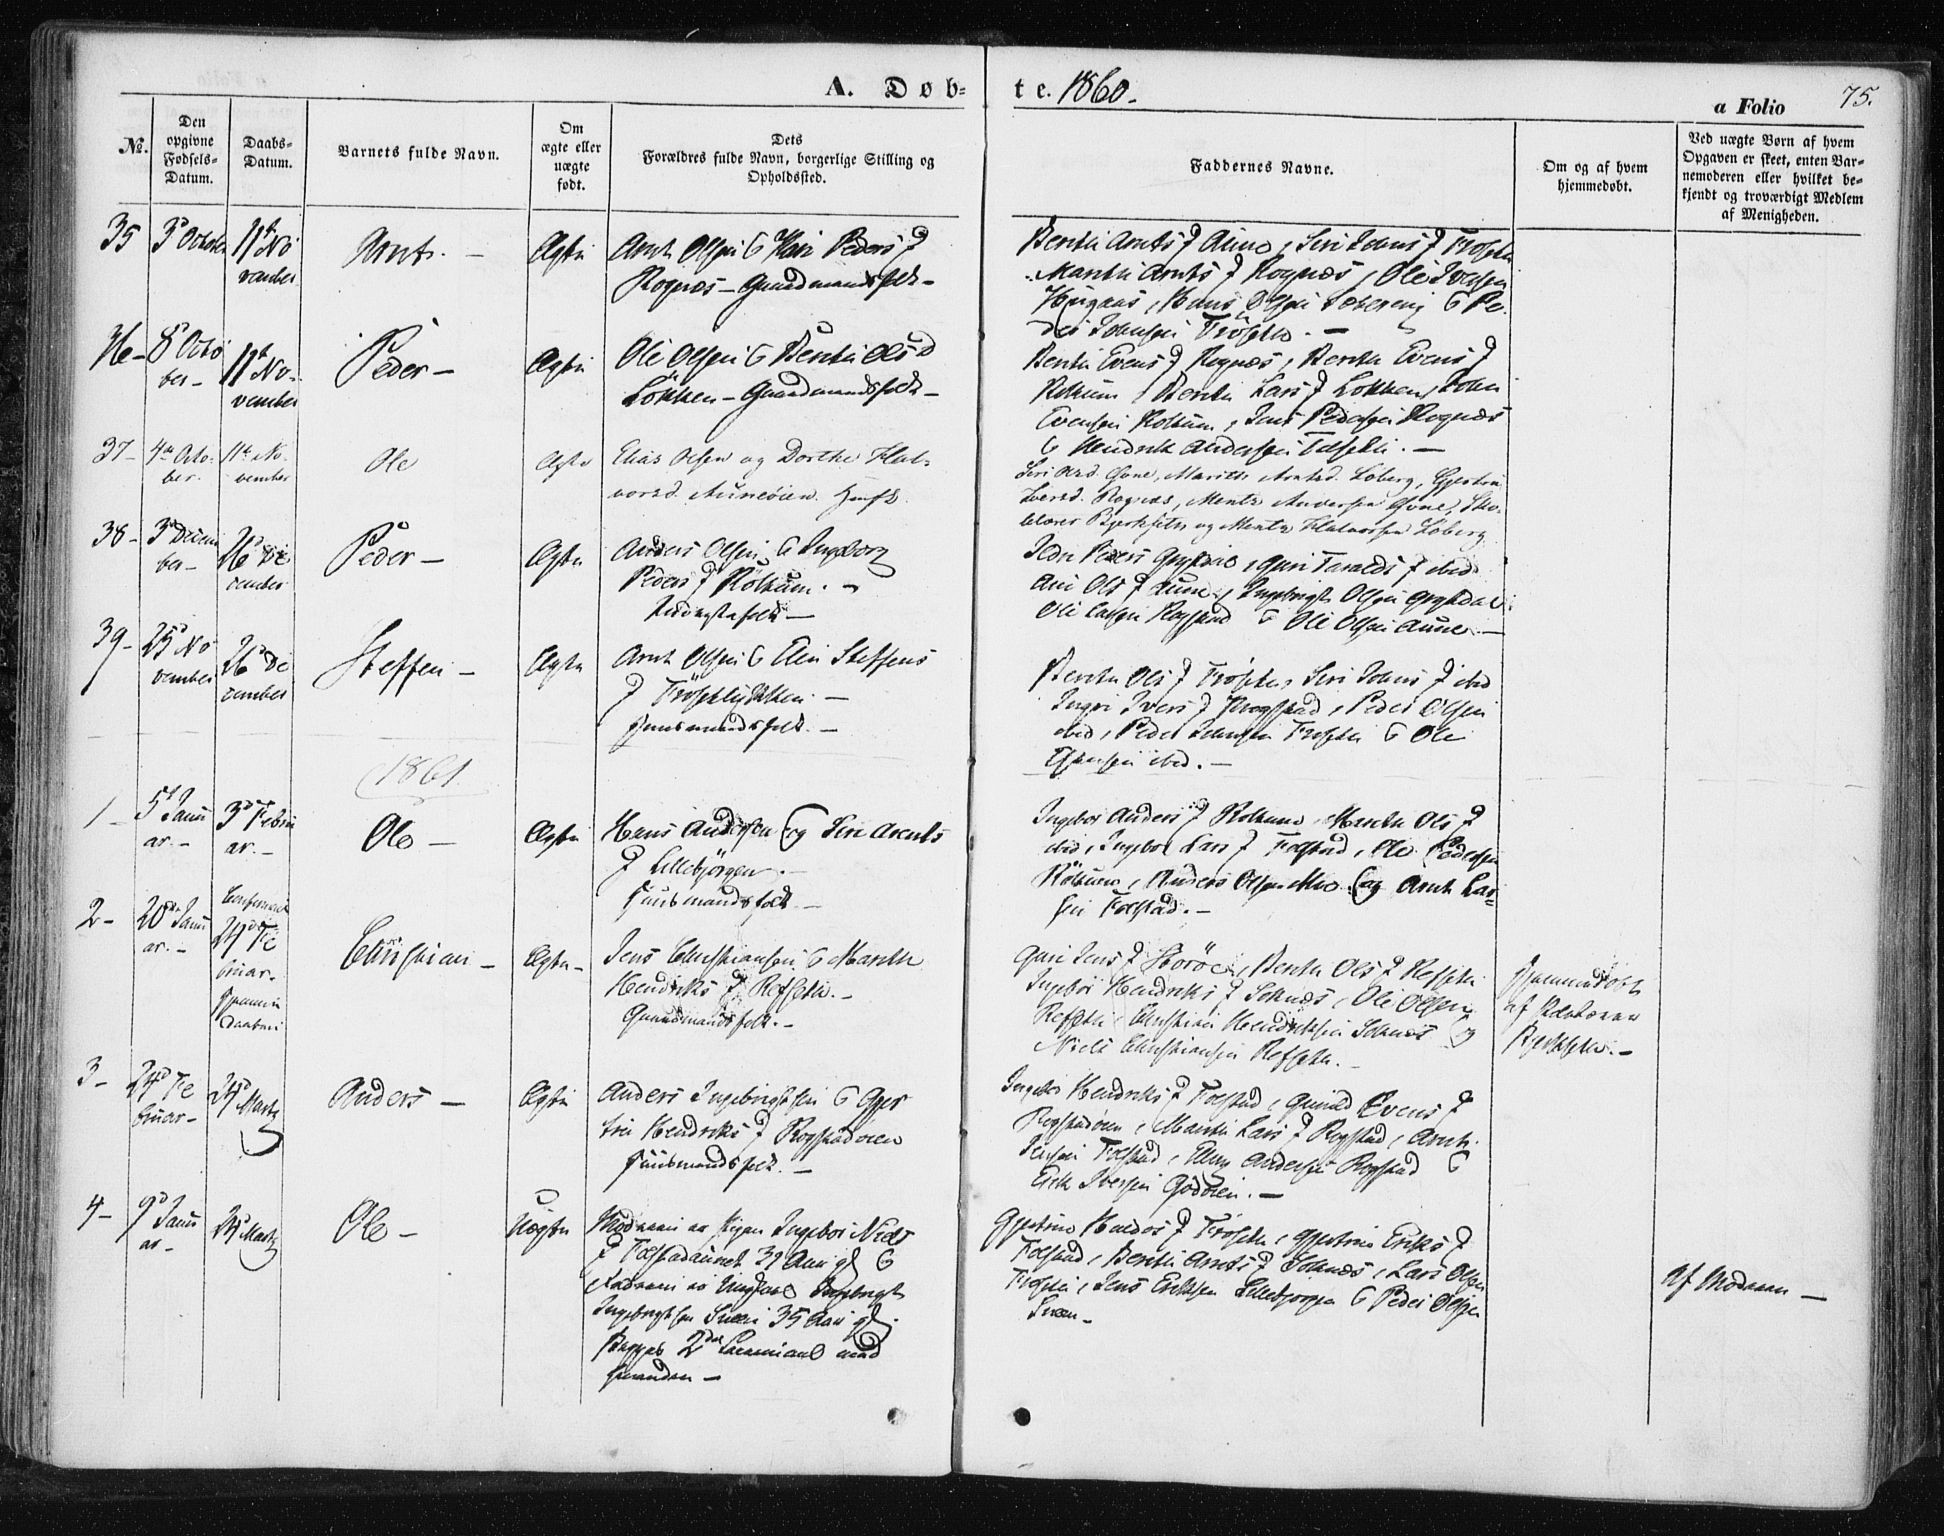 A. Døb-
te. 1860.
a Folio 75.
No.
Den opgivne Fødsels-Datum.
Daabs-Datum.
Barnets fulde Navn.
Om ægte eller uægte født.
Dets Forældres fulde Navn, borgerlige Stilling og Opholdssted.
Faddernes Navne.
Om og af hvem hjemmedøbt.
Ved uægte Børn af hvem Opgaven er skeet, enten Barnemoderen eller hvilket bekjendt og troværdigt Medlem af Menigheden.
35
3d October
11te November
Arnt. -
Ægte
Arnt Olsen & Kari Peders D
Rognæs - Gaardmandsfolk -
Berthe Arnts D Aune, Siri Johns D Frøseth
Marith Arnts D Rognæs, Ole Iversen
Haugnæs, Hans Olsen & Pe-
der Johnsen Frøseth. -
36 -
8d October -
11te November
Peder -
Ægte
Ole Olsen & Berthe Ols D
Løkken - Gaardmandsfolk -
Berthe Evens D Rognæs, Berith Evens D
Rolkum, Berthe Lars D Løkken, John
Evensen Rolkum, Jens Pedersen Rognæs
& Hendrik Andersen Folseth. -
37 -
4de October.
11te November
Ole
Ægte
Elias Olsen og Dorthe Hal-
vorsd. Auneøien. Husf.
Siri Olsd. Gvne, Marith Arntsd. Løberg, Gjertru
Iversd. Rognæs, Mentz Andersen Gvne, Sko-
lelærer Bjerkseth og Mentz Halvorsen Løberg
38 -
3d December -
26d December
Peder -
Ægte
Anders Olsen & Ingeborg
Peders D Rölkum. -
Inderstefolk -
Peders Grytdal, Guri Taralds D ibid
Ane Ols D Aune, Ingebrigt Olsen Grytdal
Ole Larsen Rogstad & Ole Olsen Aune -
39 -
25d November
26d December
Steffen -
Ægte
Arnt Olsen & Elen Steffens
D Frösethlykken. -
Huusmandsfolk. -
Berthe Ols D Frøseth, Siri Johns D ibid
Ingri Ivers D Krogstad, Peder Olsen
ibid, Peder Johnsen Frøseth & Ole
Estensen ibid. -
1861.
1 -
5d Januar. -
3d Februar. -
Ole -
Ægte
Hans Andersen og Siri Arents
D Lillebjörgen. -
Huusmandsfolk -
Ingebor Anders D Rolkum, Marith Ols D
ibid, Ingebor Lars D Folstad, Ole Pedersen
Rölkum, Anders Olsen Moe og Arnt Lar-
sen Folstad. -
2 -
20de Januar. -
24d Februar.
Hjemmedaaben
Christian -
Ægte -
Jens Christiansen & Marith
Hendriks D Refseth. -
Gaardmandsfolk. -
Guri Jens D Storöe, Berith Ols D Refseth
Ingebor Hendriks D Soknæs, Ole Olsen
Refseth, Christian Hendriksen Soknæs og
Niels Christiansen Refseth. -
Hjemmedöbt
af Skolelærer
Bjerkseth. -
3 -
24d Februar -
24d Martz
Anders -
Ægte
Anders Ingebrigtsen & Gjer-
tru Hendriks D Rogstadøien
Huusmandsfolk. -
Ingebor Hendriks D Folstad, Gunild Evens D
Rogstadøien, Marith Lars D Rogstad, Arnt
Jensen Folstad, Elling Andersen Rogstad &
Erik Iversen Godøien. -
4 -
9d Januar -
24d Martz
Ole -
Uægte
Moderen er Pigen Ingebor Niels
D Folstadaunet 32 Aar gl. &
Faderen er Ungkarl Ingebrigt
Ingebrigtsen 35 Aar gl.
Begges 2det Leiermaal med
hinanden -
Gjertrue Haldos D Frøseth, Gjertrue Eriks D
Folstad, Berthe Arnts D Soknæs, Lars Olsen
Frøseth, Jens Eriksen Lillebjørgen & Peder Olsen
Af Moderen -